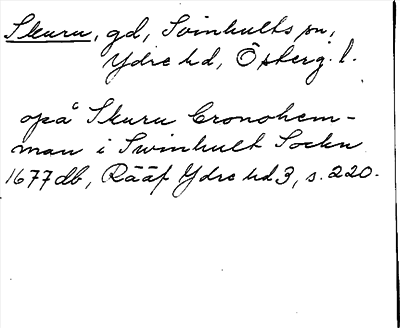 Skuru, gd, Svinhults sn,
Ydre hd, Österg. l.
opå Skuru Cronohem-
man i Swinhult Sockn
1677 db, Rääf Ydre hd 3, s. 220.